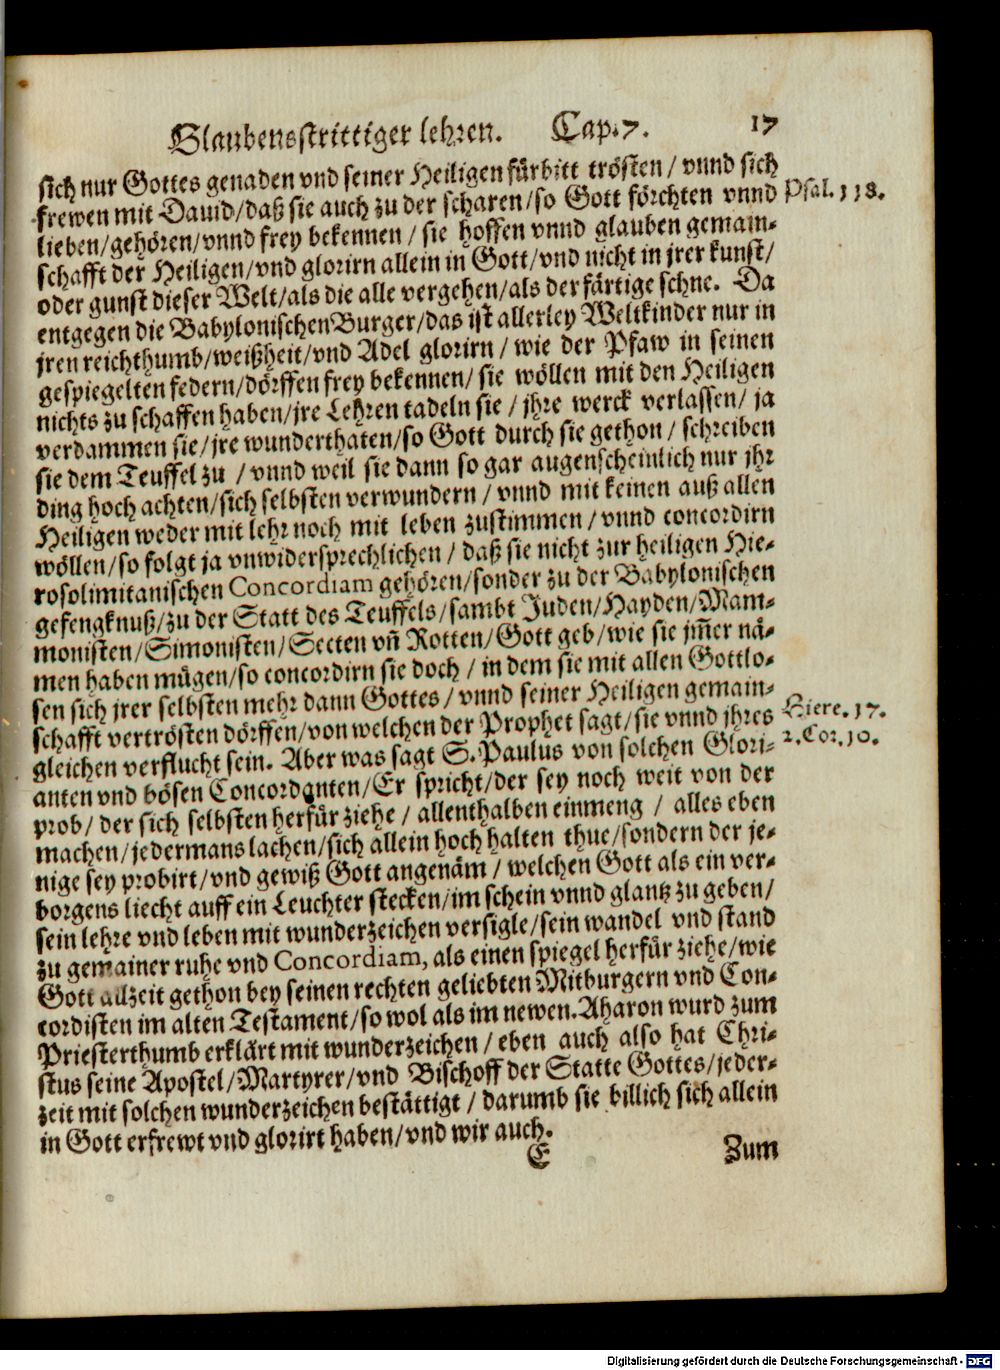 Glaubensstrittiger lehren. Cap. 7. 17
sich nur Gottes genaden vnd seiner Heiligen fürbitt trösten / vnnd sich
frewen mit Dauid/daß sie auch zu der scharen/so Gott förchten vnnd Psal. 118.
lieben/gehören/vnnd frey bekennen / sie hoffen vnnd glauben gemain-
schafft der Heiligen/vnd glorirn allein in Gott/vnd nicht in jrer kunst/
oder gunst dieser Welt/als die alle vergehen/als der färtige schne. Da
entgegen die Babylonischen Burger/das ist allerley Weltkinder nur in
jren reichthumb/weißheit/vnd Adel glorirn / wie der Pfaw in seinen
gespiegelten federn/dörffen frey bekennen/ sie wöllen mit den Heiligen
nichts zu schaffen haben/jre Lehren tadeln sie / jhre werck verlassen/ ja
verdammen sie/jre wunderthaten/so Gott durch sie gethon / schreiben
sie dem Teuffel zu / vnnd weil sie dann so gar augenscheinlich nur jhr
ding hoch achten/sich selbsten verwundern / vnnd mit keinen auß allen
Heiligen weder mit lehr noch mit leben zustimmen / vnnd concordirn
wöllen/so folgt ja vnwidersprechlichen / daß sie nicht zur heiligen Hie-
rosolimitanischen Concordiam gehören/sonder zu der Babylonischen
gefengknuß/zu der Statt des Teuffels/sambt Juden/Hayden/Mam-
monisten/Simonisten/Secten vn̄ Rotten/Gott geb/wie sie jm̄er nä-
men haben mügen/so concordirn sie doch / in dem sie mit allen Gottlo-
sen sich jrer selbsten mehr dann Gottes / vnnd seiner Heiligen gemain-
schafft vertrösten dörffen/von welchen der Prophet sagt/sie vnnd jhres Hiere. 17.
gleichen verflucht sein. Aber was sagt S. Paulus von solchen Glori- 2. Cor. 10.
anten vnd bösen Concordanten/Er spricht/der sey noch weit von der
prob/ der sich selbsten herfür ziehe / allenthalben einmeng / alles eben
machen/jedermans lachen/sich allein hoch halten thue/sondern der je-
nige sey probirt/vnd gewiß Gott angenäm / welchen Gott als ein ver-
borgens liecht auff ein Leuchter stecken/im schein vnnd glantz zu geben/
sein lehre vnd leben mit wunderzeichen versigle/sein wandel vnd stand
zu gemainer ruhe vnd Concordiam, als einen spiegel herfür ziehe/wie
Gott allzeit gethon bey seinen rechten geliebten Mitburgern vnd Con-
cordisten im alten Testament/so wol als im newen. Aharon wurd zum
Priesterthumb erklärt mit wunderzeichen / eben auch also hat Chri-
stus seine Apostel/Martyrer/vnd Bischoff der Statte Gottes/jeder-
zeit mit solchen wunderzeichen bestättigt / darumb sie billich sich allein
in Gott erfrewt vnd glorirt haben/vnd wir auch.
E Zum
Digitalisierung gefördert durch die Deutsche Forschungsgemeinschaft - DFG